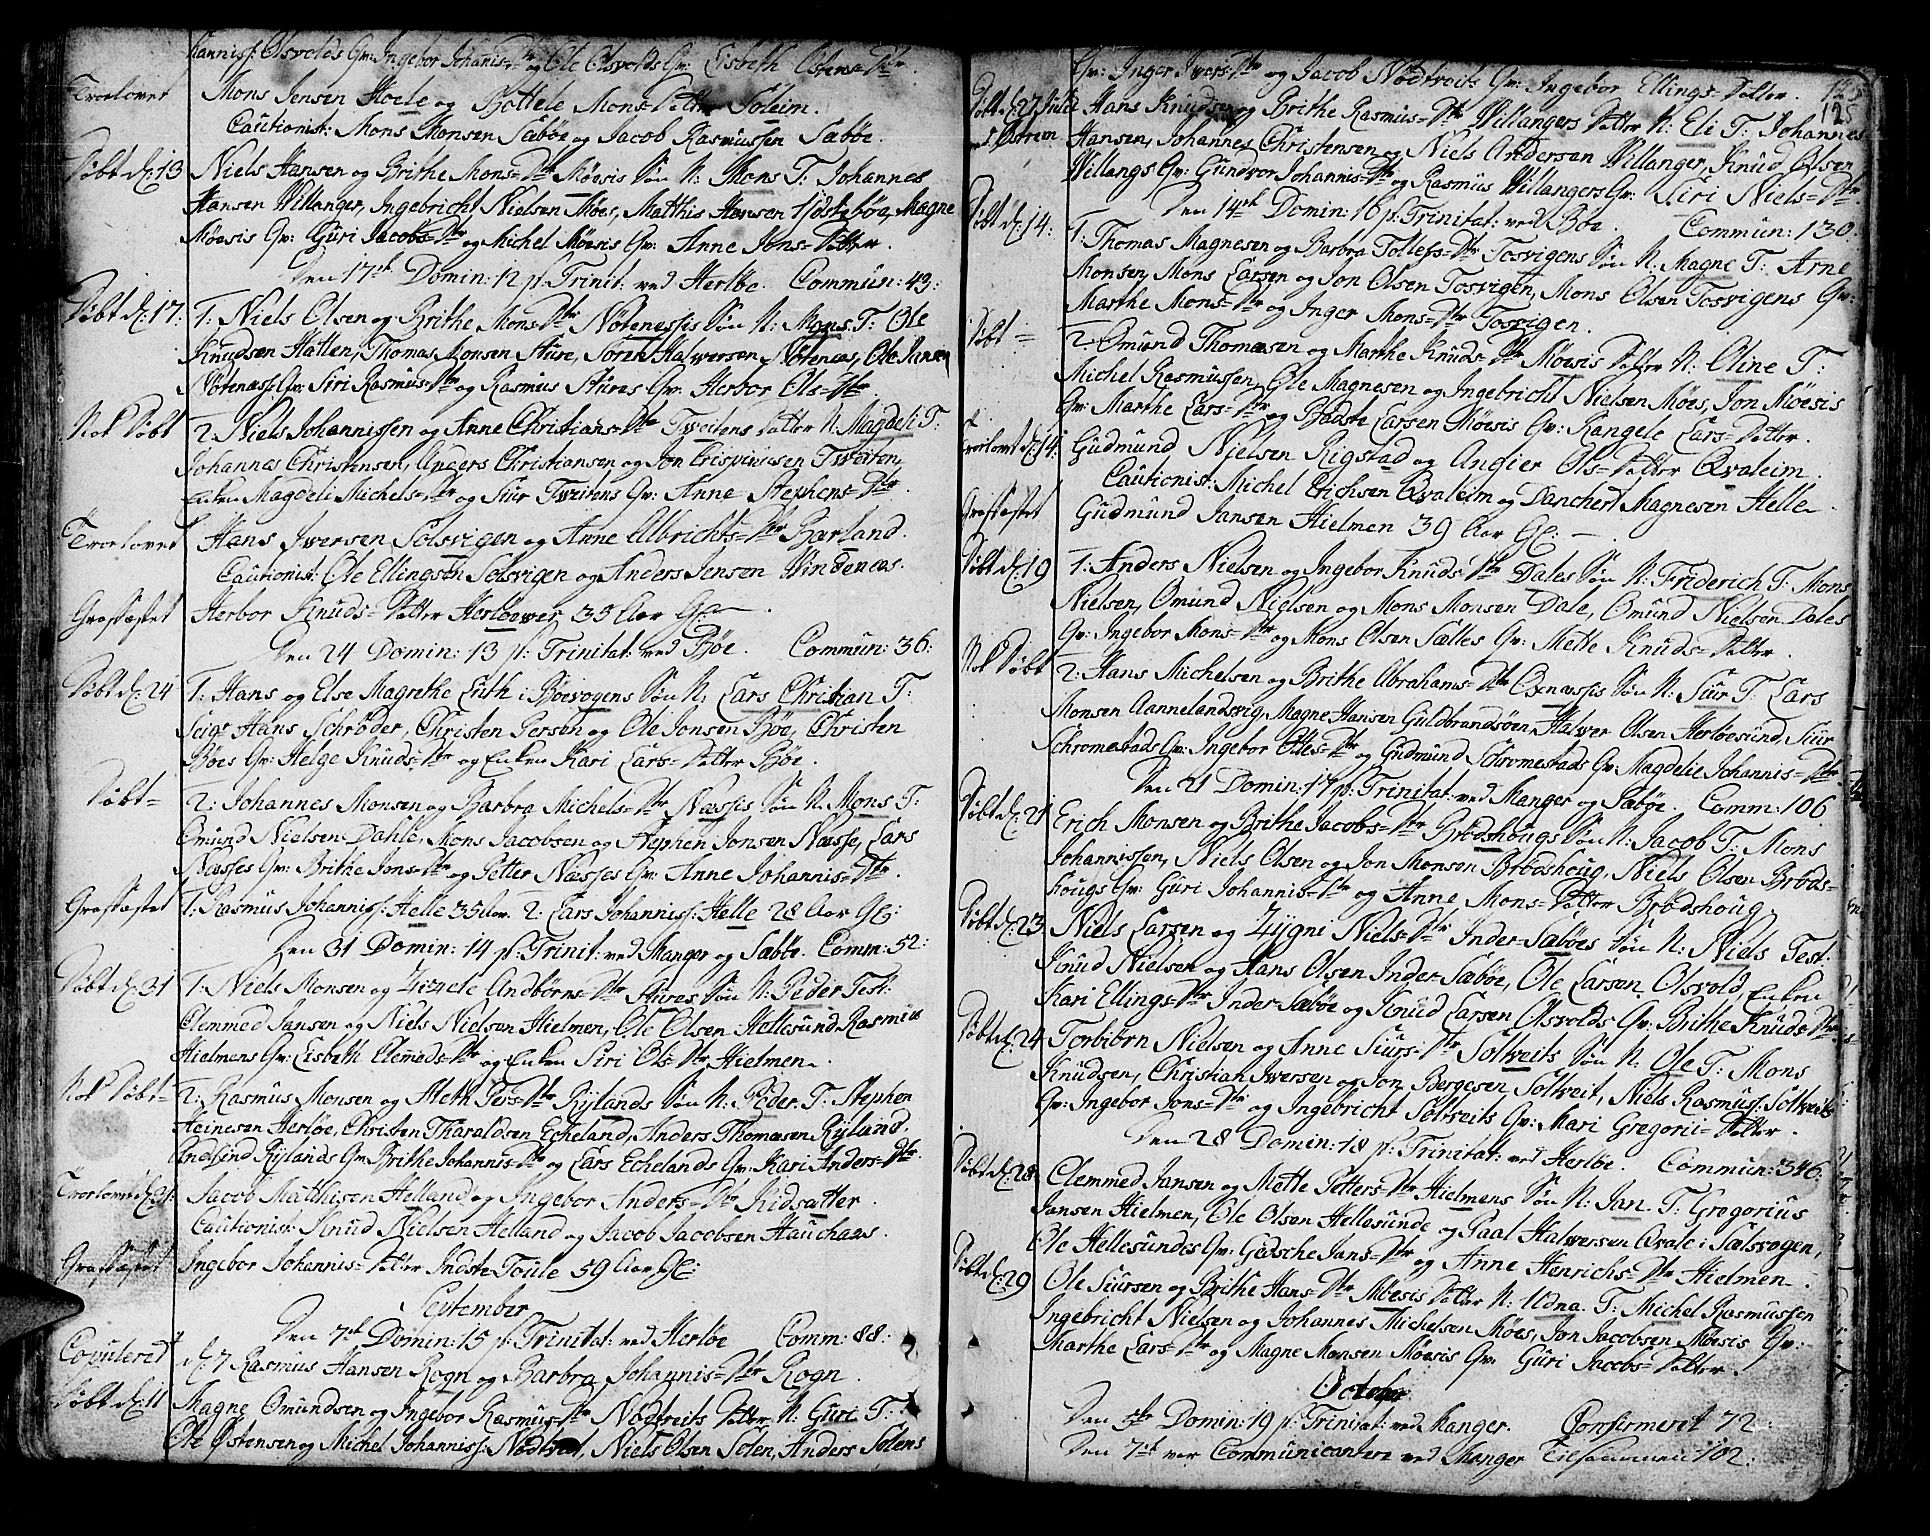 Hannisf: Olsvolds Qv: Ingebor Johanis=Dtr og Ole Olsvolds Qv: Lisbeth Ostens=Dtr
Trorlovet Mons Jensen Hoele og Bottele Mons=Datter Soleim.
Cautionist: Mons Monsen Sæbøe og Jacob Rasmussen Sæbøe.
Døbt d: 13 Niels Hansen og Brithe Mons=Dtr Møesis Søn N: Mons T: Johannes
Hansen Willanger, Ingebricht Nielsen Møes, Matthis Hansen Fjdstebøe, Magne
Møesis Qv: Guri Jacobs=Dtr og Michel Møesis Qv: Anne Jons=Datter.
Den 17de Domin: 12 p: Trinit: ved Herløe. Commun: 43:
Døbt d: 17: 1: Niels Olsen og Brithe Mons=Dtr Nøtenessis Søn N: Mons T: Ole
Knudsen Hatlen, Thomas Monsen Sture, Soren Halversen Nøtenæs, Ole Jansen
Nøtenæss: Qv: Siri Rasmus=Dtr og Rasmus Stures Qv: Herbor Ols=Dtr
Nok Døbt 2: Niels Johannissen og Anne Christians=Dtr Tweitens Datter N: Magdeli T:
Johannes Christensen, Anders Christiansen og Jon Crispinusen Tweiten,
Enken Magdeli Michels=Dtr og Siur Tweitens Qv: Anne Stephens=Dtr
Trorlovet Hans Iwersen Solsvigen og Anne Olbrichts=Dtr Barland.
Cautionist: Ole Ellingsen Solsvigen og Anders Jensen Windenes.
Grafkastet Herbor Knuds=Datter Herløewer 35 Aar Gl:
Den 24 Domin: 13 p: Trinitat: ved Bøe. Commun: 36:
Døbt d: 24 1: Hans og Else Magrethe Luth i Bøevogens Søn N: Lars Christian T:
Seigr Hans Schrøder, Christen Persen og Ole Jonsen Bøe, Christen
Bøes Qv: Helge Knuds=Dtr og Enken Kari Lars=Datter Bøe.
Døbt= 2: Johannes Monsen og Barbra Michels=Dtr Næssis Søn N: Mons T:
Omund Nielsen Dahle, Mons Jacobsen og Stephen Jonsen Næsse, Lars
Næsses Qv: Brithe Jons=Dtr og Petter Næsses Qv: Anne Johannis=Dtr.
Grafkastet 1: Rasmus Johanniss: Helle 35 Aar. 2: Lars Johanniss: Helle 28 Aar Gl:
Den 31 Domin: 14 p: Trinit: ved Manger og Sæbøe. Comm: 52:
Døbt d: 31 1: Niels Monsen og Zizele Andbørns=Dtr Stures Søn N: Peder Test:
Clemmed Jansen og Niels Nielsen Hielmen, Ole Olsen Hellesund, Rasmus
Hielmens Qv: Lisbeth Clemeds=Dtr og Enken Siri Ols=Dtr Hielmen.
Nok Døbt= 2: Rasmus Monsen og Aleth Pers=Dtr Rylands Søn N: Peder. T: Stephen
Heinesen Herløe, Christen Tharaldsen Echeland, Anders Thomæsen Ryland.
Andsind Rylands Qv: Brithe Johannis=Dtr og Lars Echelands Qv: Kari Anders=Dtr.
Trorlovet d: 31: Jacob Matthisen Helland og Ingebor Anders=Dtr Ridsætter.
Cautionist: Knud Nielsen Helland og Jacob Jacobsen Hauchaas.
Grafkastet Ingebor Johannis=Datter Indste Toule 59 Aar Gl:
September
Den 7de Domin: 15 p: Trinitat: ved Herløe Comm: 88:
Copuleret d: 7 Rasmus Hansen Rogn og Barbra Johannis=Dtr Rogn.
Døbt d: 11 Magne Omundsen og Ingebor Rasmus=Dtr Nødtveits Datter N: Guri T:
Ole Østensen og Michel Johanniss: Nødtvet, Niels Olsen Solen, Anders Solens
125
Qv: Inger Iwers=Dtr og Jacob Nødtveits Qv: Ingebor Ellings=Datter.
Døbt d: 27 Julii Hans Knudsen og Brithe Rasmus=Dtr Willangers Datter N: Eli T: Johannes
ved Østrem Hansen, Johannes Christensen og Niels Andersen Willanger, Knud Olsen
Willangs Qv: Gundvor Johannis=Dtr og Rasmus Willangers Qv: Siri Niels=Dtr.
Den 14de Domin: 16 p: Trinitat: ved Bøe. Commun: 130.
Døbt d: 14. 1: Thomas Magnesen og Barbra Tollefs=Dtr Tosvigens Søn N: Magne T: Arne
Monsen, Mons Larsen og Jon Olsen Tosvigen, Mons Olsen Tosvigens Qv:
Marthe Mons=Dtr og Inger Mons=Dtr Tosvigen.
Døbt= 2: Omund Thomæsen og Marthe Knuds=Dtr Møesis Datter N: Oline T:
Michel Rasmussen, Ole Magnesen og Ingebricht Nielsen Møes, Jon Møesis
Qv: Marthe Lars=Dtr og Badste Larsen Møesis Qv: Rangele Lars=Datter.
Trorlovet d: 14: Gudmund Nielsen Rigstad og Angier Ols=Datter Qvaleim.
Cautionist: Michel Erichsen Qvaleim og Danchert Magnesen Helle.
Grafkastet Gudmund Jansen Hielmen 39 Aar Gl:
Døbt d: 19 1: Anders Nielsen og Ingebor Knuds=Dtr Dales Søn N: Friderich T: Mons
Nielsen, Omund Nielsen og Mons Monsen Dale, Omund Nielsen Dales
Qv: Ingebor Mons=Dtr og Mons Olsen Sælles Qv: Mette Knuds=Datter.
Nok Døbt 2: Hans Michelsen og Brithe Abrahams=Dtr Oxnæssis Søn N: Siur T: Lars
Monsen Aannelandsvig, Magne Hansen Guldbrandsøen, Halwer Olsen Herløesund, Siur
Schromestads Qv: Ingebor Olles=Dtr og Gudmund Schromestads Qv: Magdelie Johannis=Dtr
Den 21 Domin: 17 p: Trinitat: ved Manger og Sæbøe. Comm: 106
Døbt d: 21 Erich Monsen og Brithe Jacobs=Dtr Brødshougs Søn N: Jacob T: Mons
Johannissen, Niels Olsen og Jon Monsen Brødshoug, Niels Olsen Brøds-
hougs Qv: Guri Johannis=Dtr og Anne Mons=Datter Brødshoug.
Døbt d: 23 Niels Larsen og Zygne Niels=Dtr Inder-Sæbøes Søn N: Niels Test.
Knud Nielsen og Hans Olsen Inder-Sæbøe, Ole Larsen Olsvold, Enken
Kari Ellings=Dtr Inder-Sæbøe og Knud Larsen Olsvolds Qv: Brithe Knuds=Dtr
Døbt d: 24 Torbiørn Nielsen og Anne Siurs=Dtr Soltveits Søn N: Ole T: Mons
Knudsen, Christian Iwersen og Jon Bergesen Soltveit, Niels Rasmuss: Soltveits
Qv: Ingebor Jons=Dtr og Ingebricht Soltveits Qv: Mari Gregorii=Datter.
Den 28 Domin: 18 p: Trinitat: ved Herløe. Commun: 346:
Døbt d: 28 Clemmed Jansen og Mette Petters=Dtr Hielmens Søn N: Jan. T: Gregorius
Jansen Hielmen, Ole Olsen Hellesunde og Paal Halversen Qvale i Sælsvogen,
Ole Hellesundes Qv: Gidsche Jans=Dtr og Anne Henrichs=Dtr Hielmen.
Døbt d: 29 Ole Siursen og Brithe Hans=Dtr Møesis Datter N: Udna. T: Michel Rasmussen
Ingebricht Nielsen og Johannes Michelsen Møes, Jon Jacobsen Møesis Qv:
Marthe Lars=Dtr og Magne Monsen Møesis Qv: Guri Jacobs=Datter.
October
Den 5te Domin: 19 p: Trinitat: ved Manger. Confirmeret 72:
Den 7de var Communicantere ved Manger Tilsammen 102: